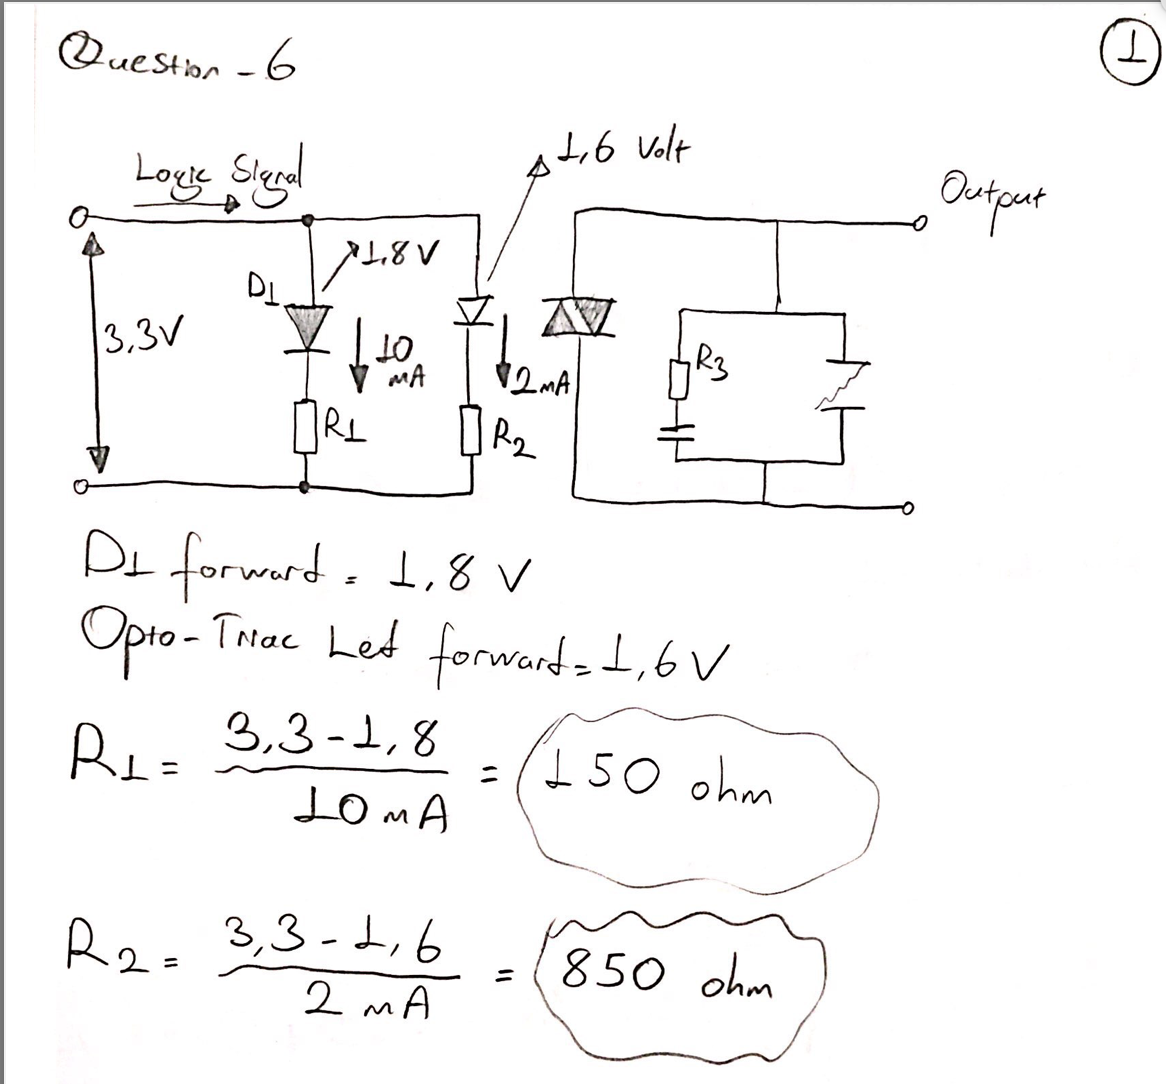 Question - 6
1
Logic Signal
1,6 Volt
Output
1,8 V
D1
3,3V
10
mA
2mA
R1
R2
R3
D1 forward = 1,8 V
Opto-Triac Led forward = 1,6 V
R1 = 3,3 - 1,8 / 10 mA = 150 ohm
R2 = 3,3 - 1,6 / 2 mA = 850 ohm